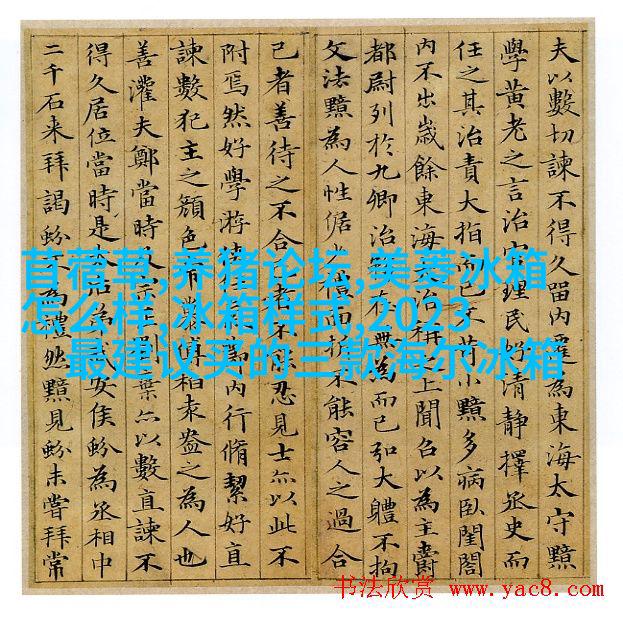 夫以數切諫不得久留內遷為東海太守黯
學黃老之言治官理民好清靜擇丞史而
任之其治責大指而已不苛小黯多病臥閨閤
內不出歲餘東海大治稱之上聞召以為主爵
都尉列於九卿治務在無為而已弘大體不拘
文法黯為人性倨少禮面折不能容人之過合
己者善待之不合己者不能忍見士亦以此不
附焉然好學游俠任內行脩絜好直
諫數犯主之顏色常慕傅柏袁盎之為人也
善灌夫鄭當時及宗正劉棄亦以數直諫不
得久居位當時是太后弟武安侯蚡為丞相中
二千石来拜謁蚡不為禮然黯見蚡未嘗拜常
苜蓿草,养猪论坛,美菱冰箱
怎么样,冰箱样式,2023
最建议买的三款海尔冰箱
书法欣赏 www.yac8.com